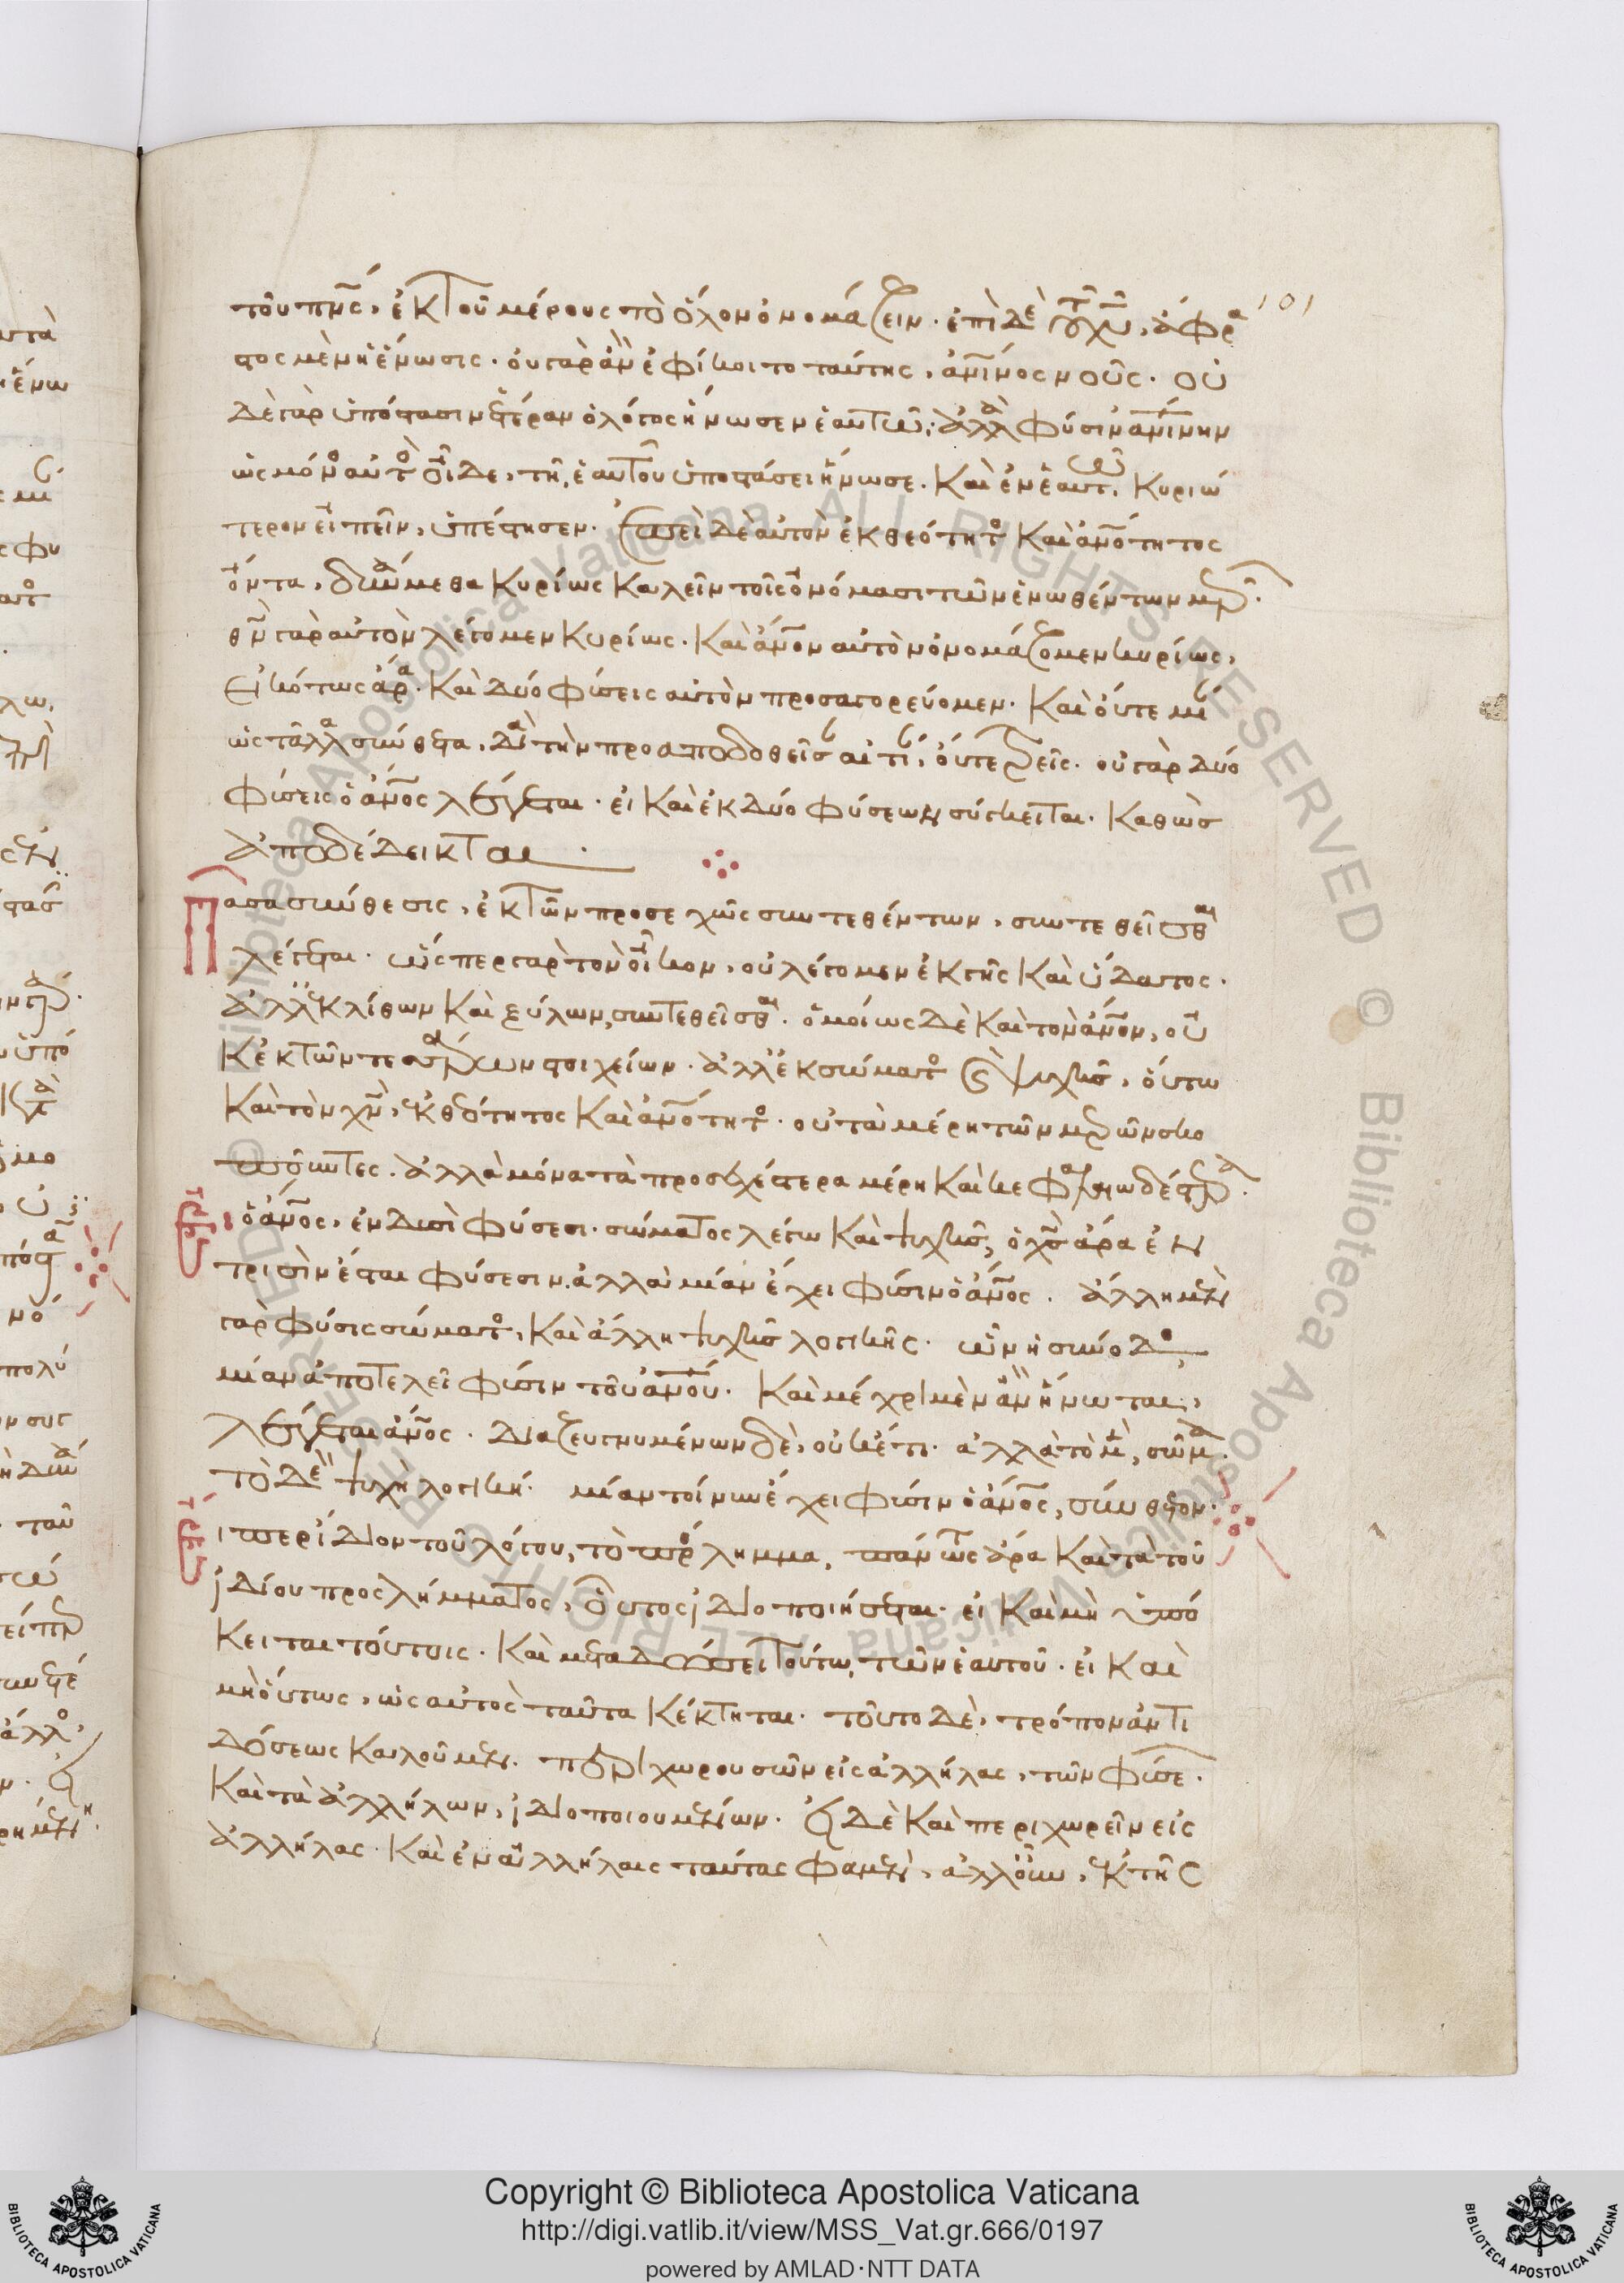 101
τοῦ πν̅ς, ἐκ τοῦ μέρους τὸ ὅλον ὀνομάζειν. ἐπὶ δὲ τοῦ χυ̅, ἄφρα
στος μὲν ἡ ἕνωσις. οὐ γὰρ ἂν ἐφίκοιτο ταύτης, ἀν̅ινος νοῦς. οὐ
δὲ γὰρ ὑπόστασιν ἑτέραν ὁ λόγος ἥνωσεν ἑαυτῶ, ἀλλὰ φύσιν ἀν̅ίνην
ὡς μόνος αὐτὸς οἶδε, τῆ ἑαυτοῦ ὑποστάσει ἥνωσε. καὶ ἐν ἑαυτῶ κυριώ
τερον εἰπεῖν, ὑπέστησεν. ἐπεὶ δὲ αὐτὸν ἐκ θεότητος καὶ ἀν̅ότητος
ὄντα, δυνάμεθα κυρίως καλεῖν τοῖς ὀνόμασι τῶν ἑνωθέντων μερῶν.
θν̅ γὰρ αὐτὸν λέγομεν κυρίως. καὶ ἄν̅ον αὐτὸν ὀνομάζομεν κυρίως,
εἰκότως ἄρα. καὶ δύο φύσεις αὐτὸν προσαγορεύομεν. καὶ οὔτε μίαν
ὡς τἄλλα σύνθετα, διὰ τὴν προαποδοθεῖσαν αἰτίαν, οὔτε τρεῖς. οὐ γὰρ δύο
φύσεις ὁ ἄν̅ος λέγεται. εἰ καὶ ἐκ δύο φύσεων σύγκειται. καθὼς
ἀποδέδεικται.
Πᾶσα σύνθεσις, ἐκ τῶν προσεχῶς συντεθέντων, συντεθεῖσθαι
λέγεται. ὥσπερ γὰρ τὸν οἶκον, οὐ λέγομεν ἐκ γῆς καὶ ὕδατος.
ἀλλ' ἐκ λίθων καὶ ξύλων, συντεθεῖσθαι. ὁμοίως δὲ καὶ τὸν ἄν̅ον, οὐ
κ ἐκ τῶν τεσσάρων στοιχείων. ἀλλ' ἐκ σώματος καὶ ψυχῆς, οὕτω
καὶ τὸν χν̅, ἐκ θεότητος καὶ ἀν̅ότητος. οὐ τὰ μέρη τῶν μερῶν σκο
ποῦντες. ἀλλὰ μόνα τὰ προσεχέστερα μέρη καὶ κεφαλαιωδέστερα.
ὁ ἄν̅ος, ἐν δυσὶ φύσεσι. σώματος λέγω καὶ ψυχῆς, ὁ χς̅ ἄρα ἐν
τρισὶν ἔσται φύσεσιν. ἀλλὰ μίαν ἔχει φύσιν ὁ ἄν̅ος. ἄλλη μὲν
γὰρ φύσις σώματος, καὶ ἄλλη ψυχῆς λογικῆς. ὧν ἡ σύνοδος
μίαν ἀποτελεῖ φύσιν τοῦ ἀν̅ου. καὶ μέχρι μὲν ἂν ἥνωται,
λέγεται ἄν̅ος. διαζευγνυμένων δὲ, οὐκέτι. ἀλλὰ τὸ μὲν, σῶμα.
τὸ δὲ ψυχὴ λογική. μίαν τοίνυν ἔχει φύσιν ὁ ἄν̅ος, σύνθετον.
περ ἴδιον τοῦ λόγου, τὸ πρόσλημμα, πάντως ἄρα καὶ τὰ τοῦ
ἰδίου προσλήμματος, οὗτος ἰδιοποιήσεται. εἰ καὶ μὴ ὑπό
κειται τούτοις. καὶ μεταδώσει τούτω, τῶν ἑαυτοῦ. εἰ καὶ
μὴ οὕτως, ὡς αὐτὸς ταῦτα κέκτηται. τοῦτο δὲ, τρόπον ἀντι
δόσεως καλοῦμεν. περιχωρουσῶν εἰς ἀλλήλας, τῶν φύσεων.
καὶ τὰ ἀλλήλων, ἰδιοποιουμένων. εἰ δὲ καὶ περιχωρεῖν εἰς
ἀλλήλας. καὶ ἐν ἀλλήλαις ταύτας φαμὲν, ἀλλ' οὖν, ἐκ τῆς
Copyright © Biblioteca Apostolica Vaticana
http://digi.vatlib.it/view/MSS_Vat.gr.666/0197
powered by AMLAD·NTT DATA